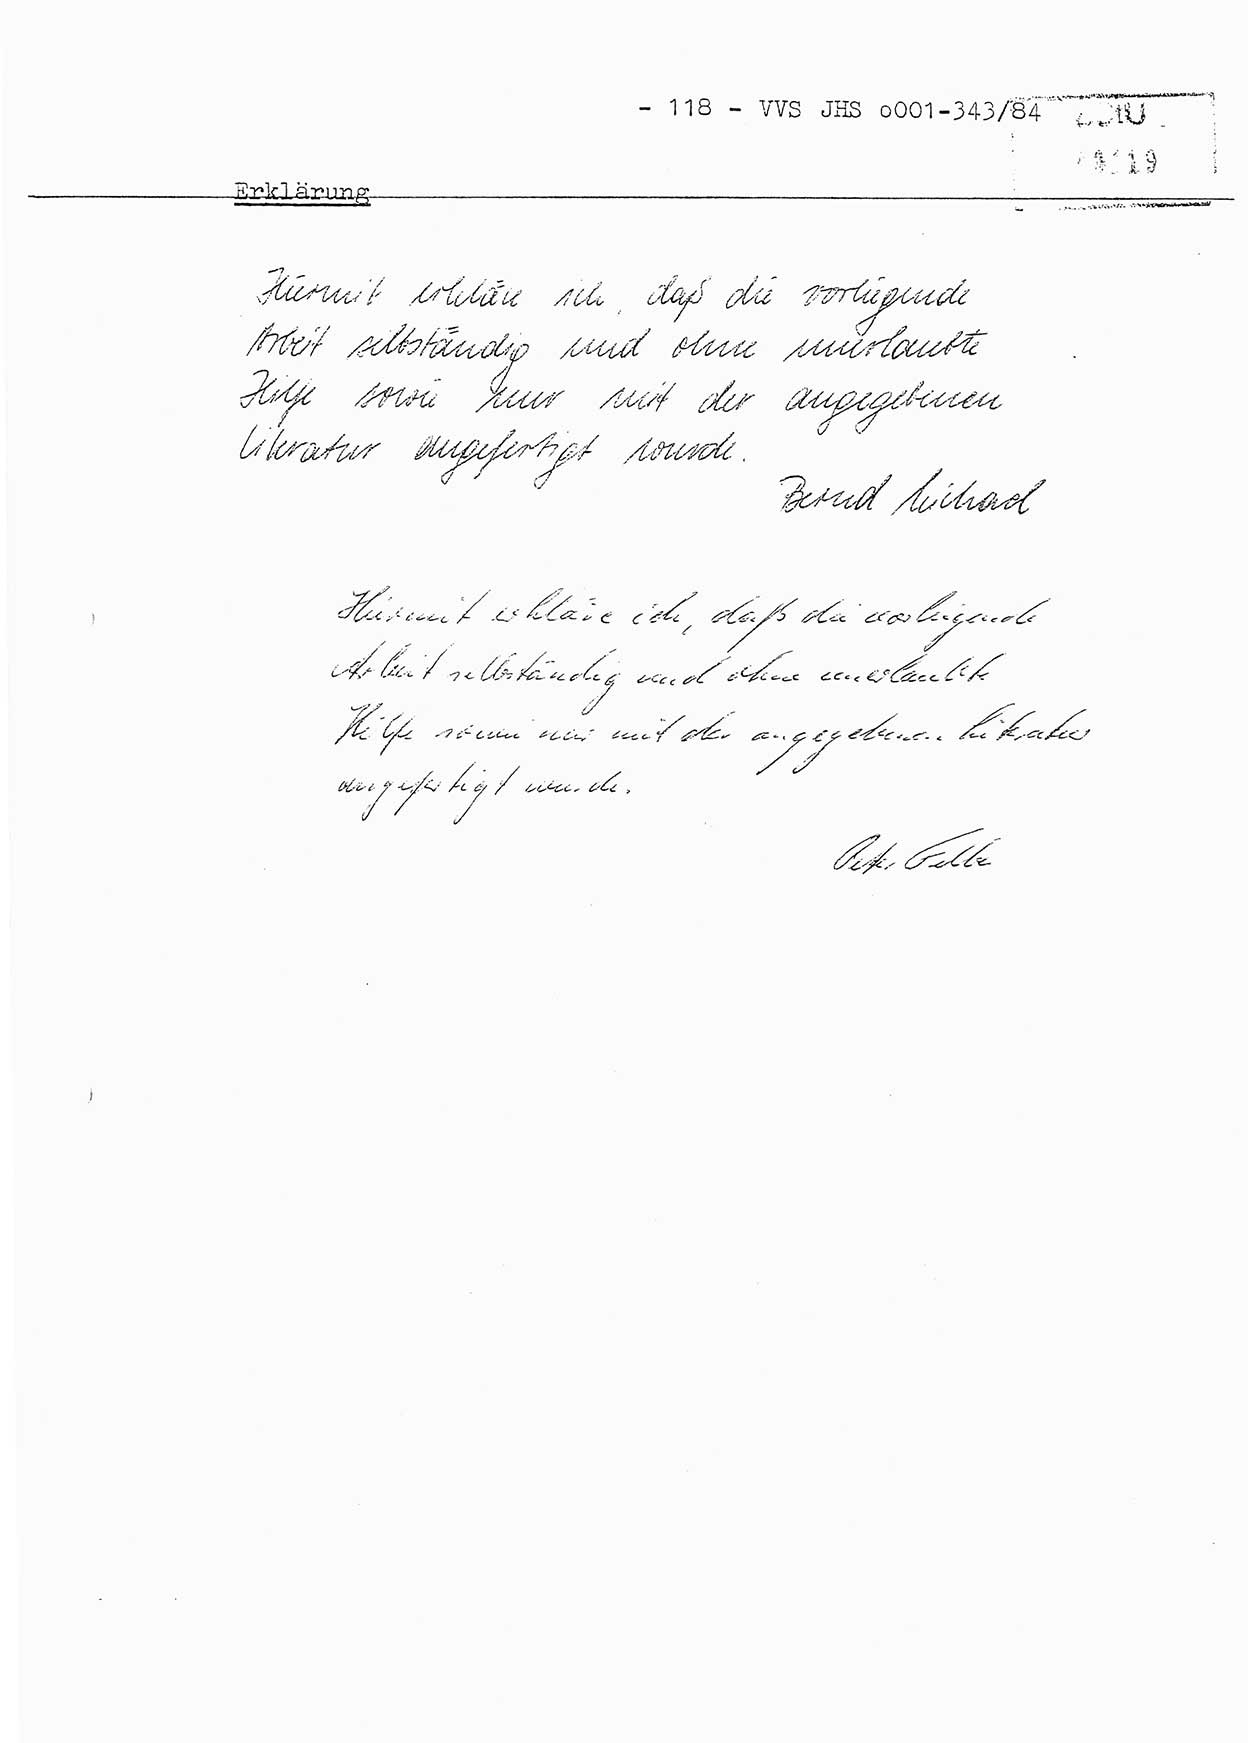 - 118 - VVS JHS o001-343/84
Erklärung
Hiermit erkläre ich, daß die vorliegende
Arbeit selbständig und ohne unerlaubte
Hilfe sowie nur mit der angegebenen
Literatur angefertigt wurde.
Bernd Michael
Hiermit erkläre ich, daß die vorliegende
Arbeit selbständig und ohne unerlaubte
Hilfe sowie nur mit der angegebenen Literatur
angefertigt wurde.
Peter